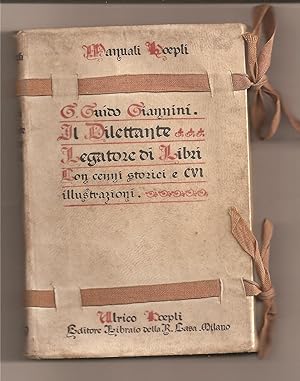 Manuali Hoepli
G. Guido Giannini.
Il Dilettante
Legatore di Libri
Con cenni storici e CVI
illustrazioni.
Ulrico Hoepli
Editore Libraio della R. Casa. Milano